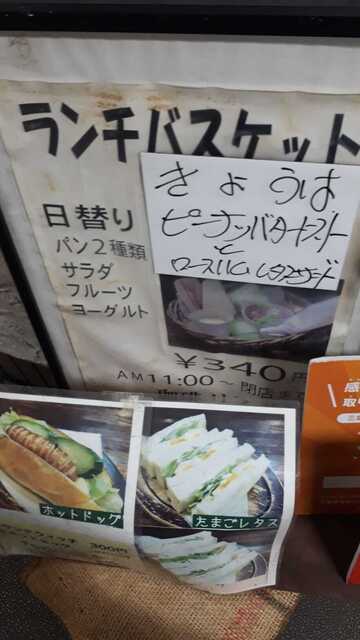 ランチバスケット
きょうは
ピーナツバタートースト
と
ロースハムレタスサンド
日替り
パン2種類
サラダ
フルーツ
ヨーグルト
¥340円
AM11:00～閉店
ホットドッグ
たまごレタス
300円